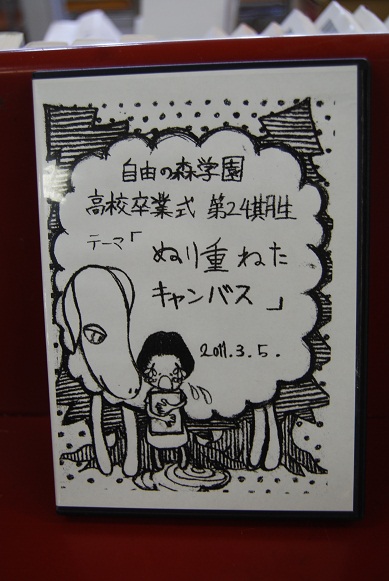 自由の森学園
高校卒業式 第24期生
テーマ「ぬり重ねた
キャンバス」
2011.3.5.